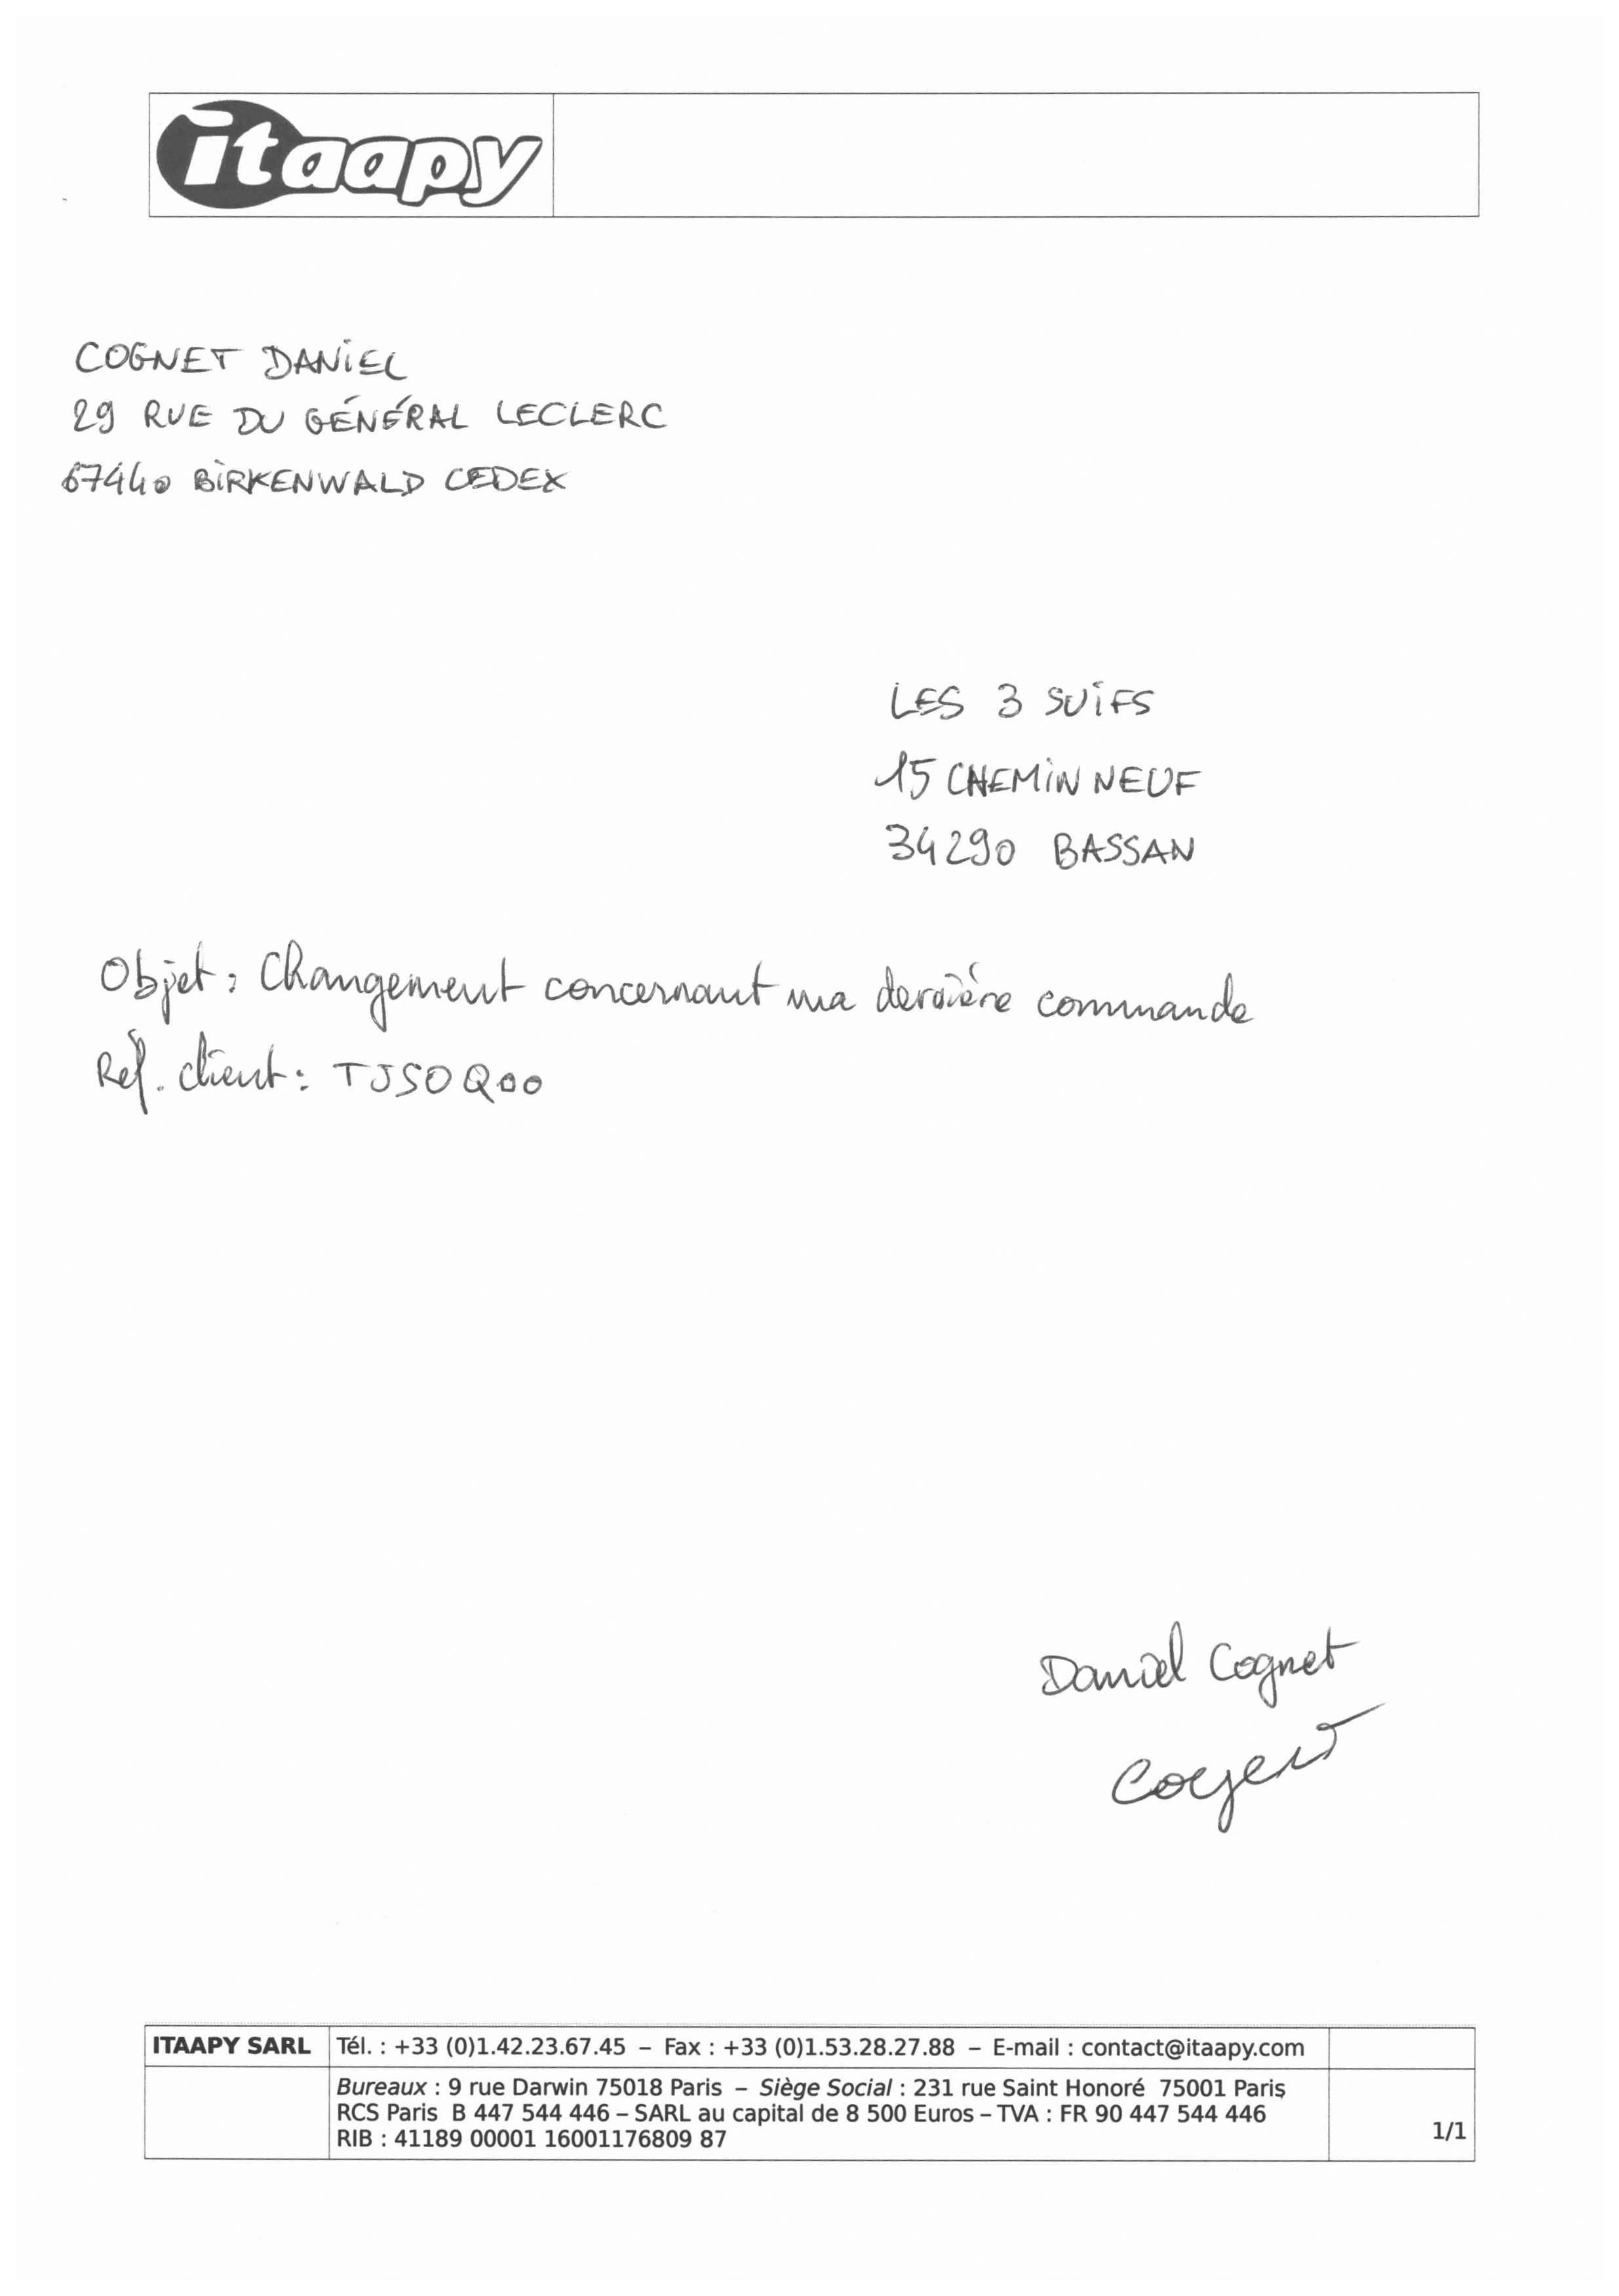 itaapy
COGNET DANIEL
29 RUE DU GÉNÉRAL LECLERC
67440 BIRKENWALD CEDEX
LES 3 SUIFS
15 CHEMIN NEUF
34290 BASSAN
Objet : Changement concernant ma dernière commande
Réf. client : TJSOQ00
Daniel Cognet
ITAAPY SARL Tél. : +33 (0)1.42.23.67.45 – Fax : +33 (0)1.53.28.27.88 – E-mail : contact@itaapy.com
Bureaux : 9 rue Darwin 75018 Paris – Siège Social : 231 rue Saint Honoré 75001 Paris
RCS Paris B 447 544 446 – SARL au capital de 8 500 Euros – TVA : FR 90 447 544 446
RIB : 41189 00001 16001176809 87
1/1